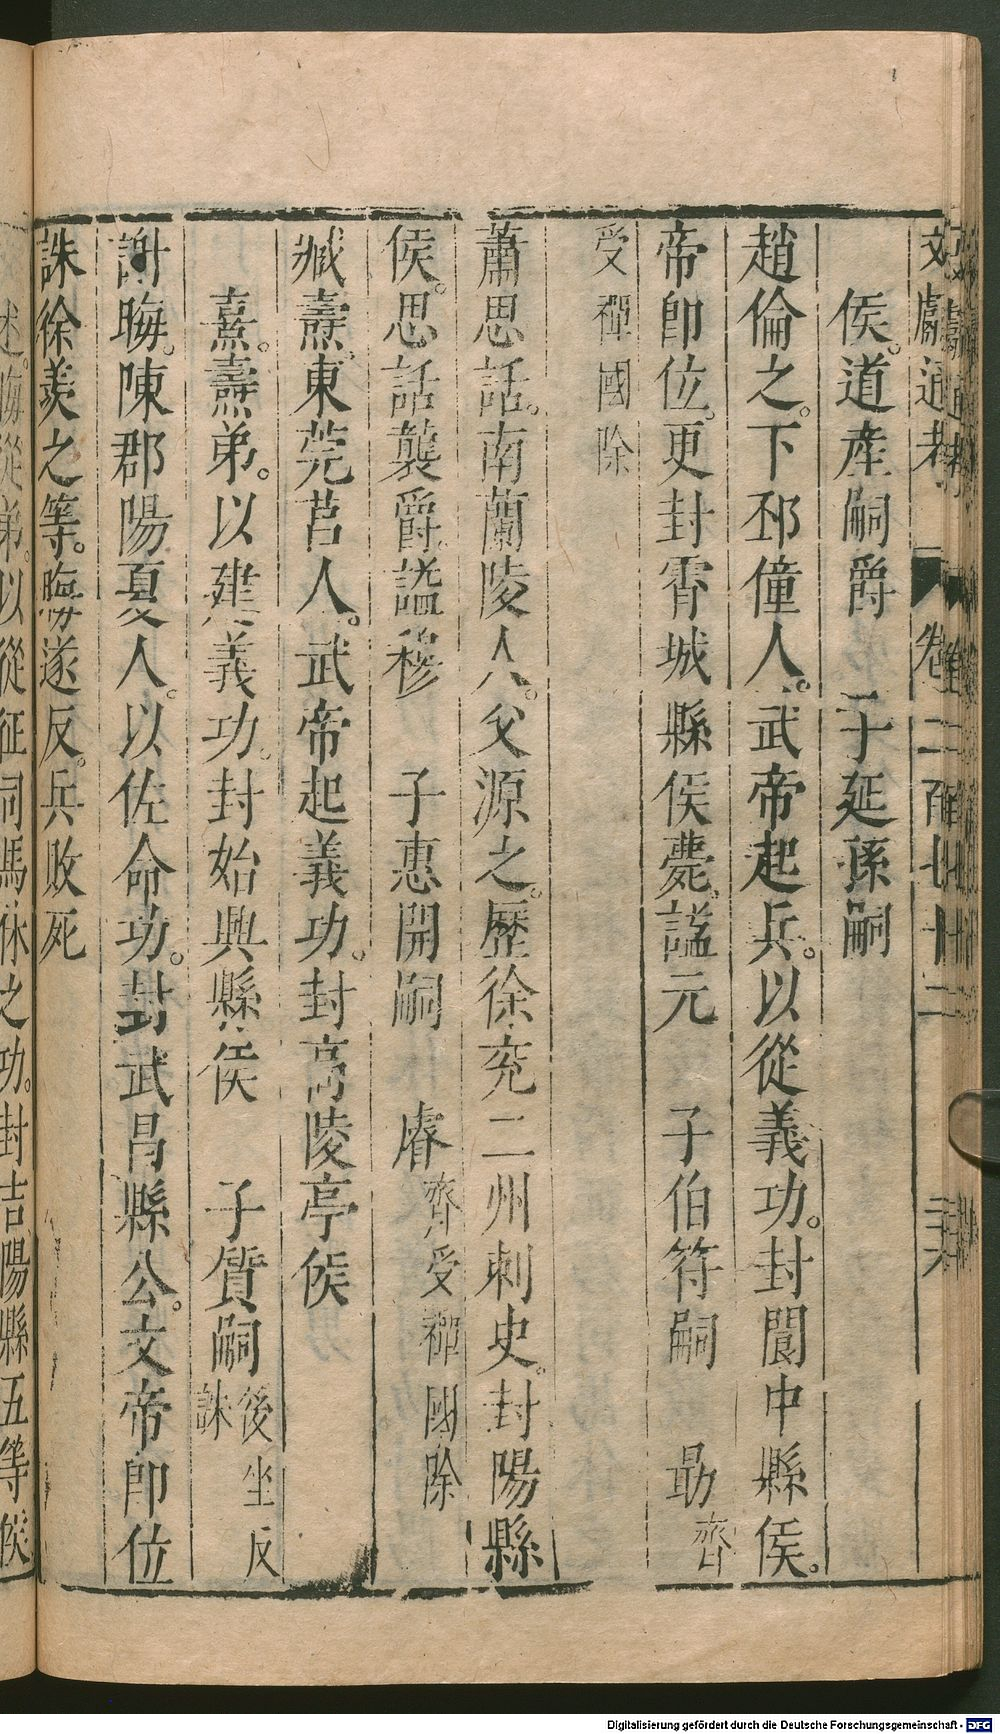 文獻通考 卷二百七十二 三六
侯。道產嗣爵 子延孫嗣
趙倫之。下邳僮人。武帝起兵。以從義功。封閬中縣侯。
帝卽位。更封霄城縣侯。薨。諡元 子伯符嗣 勗 齊
受禪國除
蕭思話。南蘭陵人。父源之。歷徐兗二州刺史。封陽縣
侯。思話襲爵。諡穆 子惠開嗣 睿 齊受禪國除
臧燾。東莞莒人。武帝起義功。封高陵亭侯
熹。燾弟。以建義功。封始興縣侯 子質嗣 後坐反誅
謝晦。陳郡陽夏人。以佐命功。封武昌縣公。文帝卽位
誅徐羨之等。晦遂反。兵敗死
述。晦從弟。以從征司馬休之功。封吉陽縣五等侯
Digitalisierung gefördert durch die Deutsche Forschungsgemeinschaft - DFG